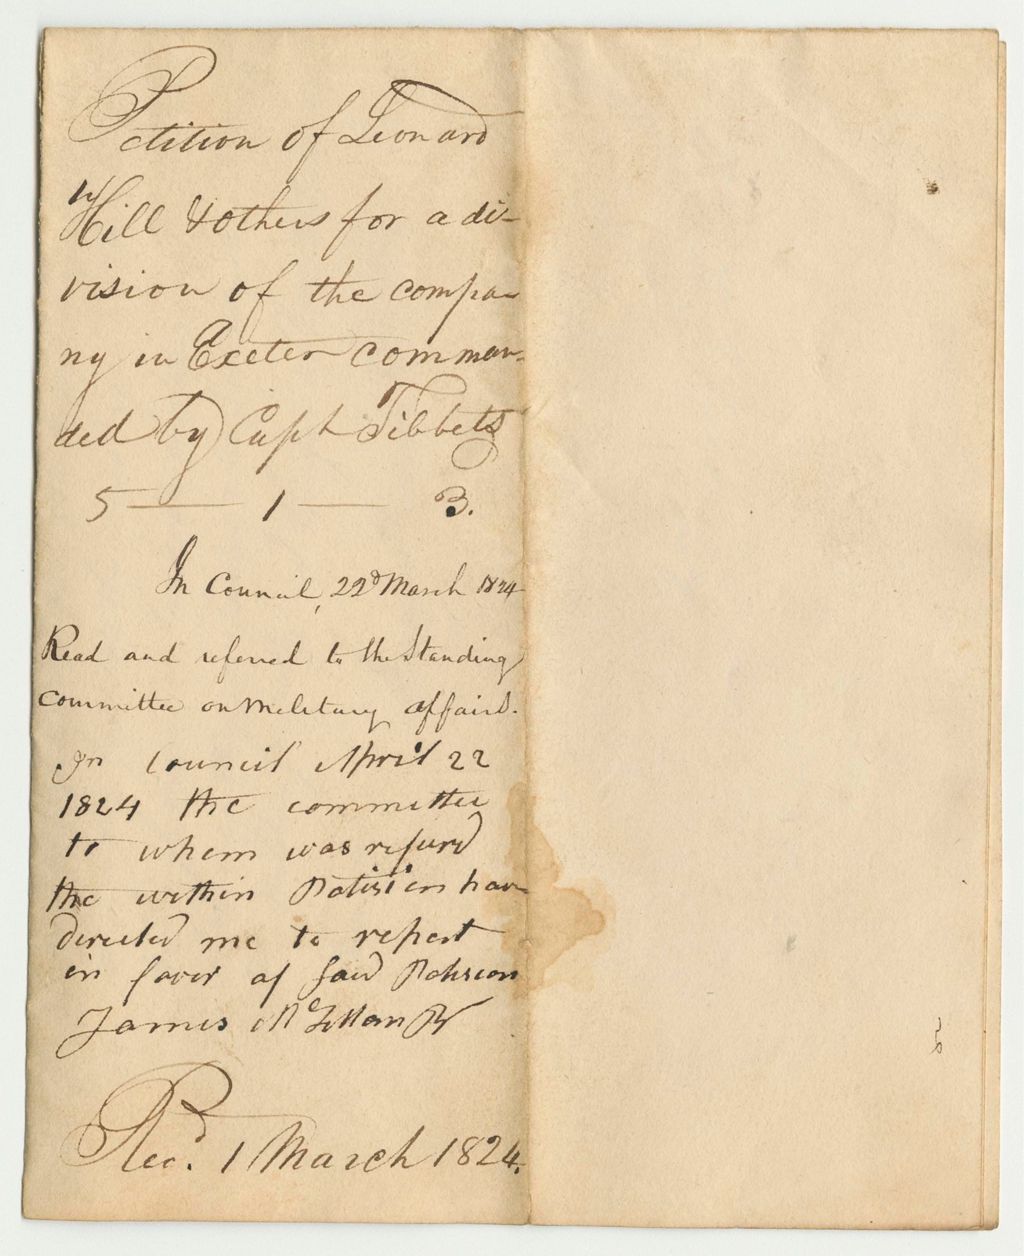 Petition of Leonard
Hill & others for a di-
vision of the compa-
ny in Exeter comman-
ded by Capt Tibbets
5 — 1 — 3.
In Council, 22d March 1824
Read and referred to the Standing
committee on Military affairs.
In Council April 22
1824 the committee
to whom was refurd
the within Patision have
directed me to report
in favor of said
James
Recd. 1 March 1824.